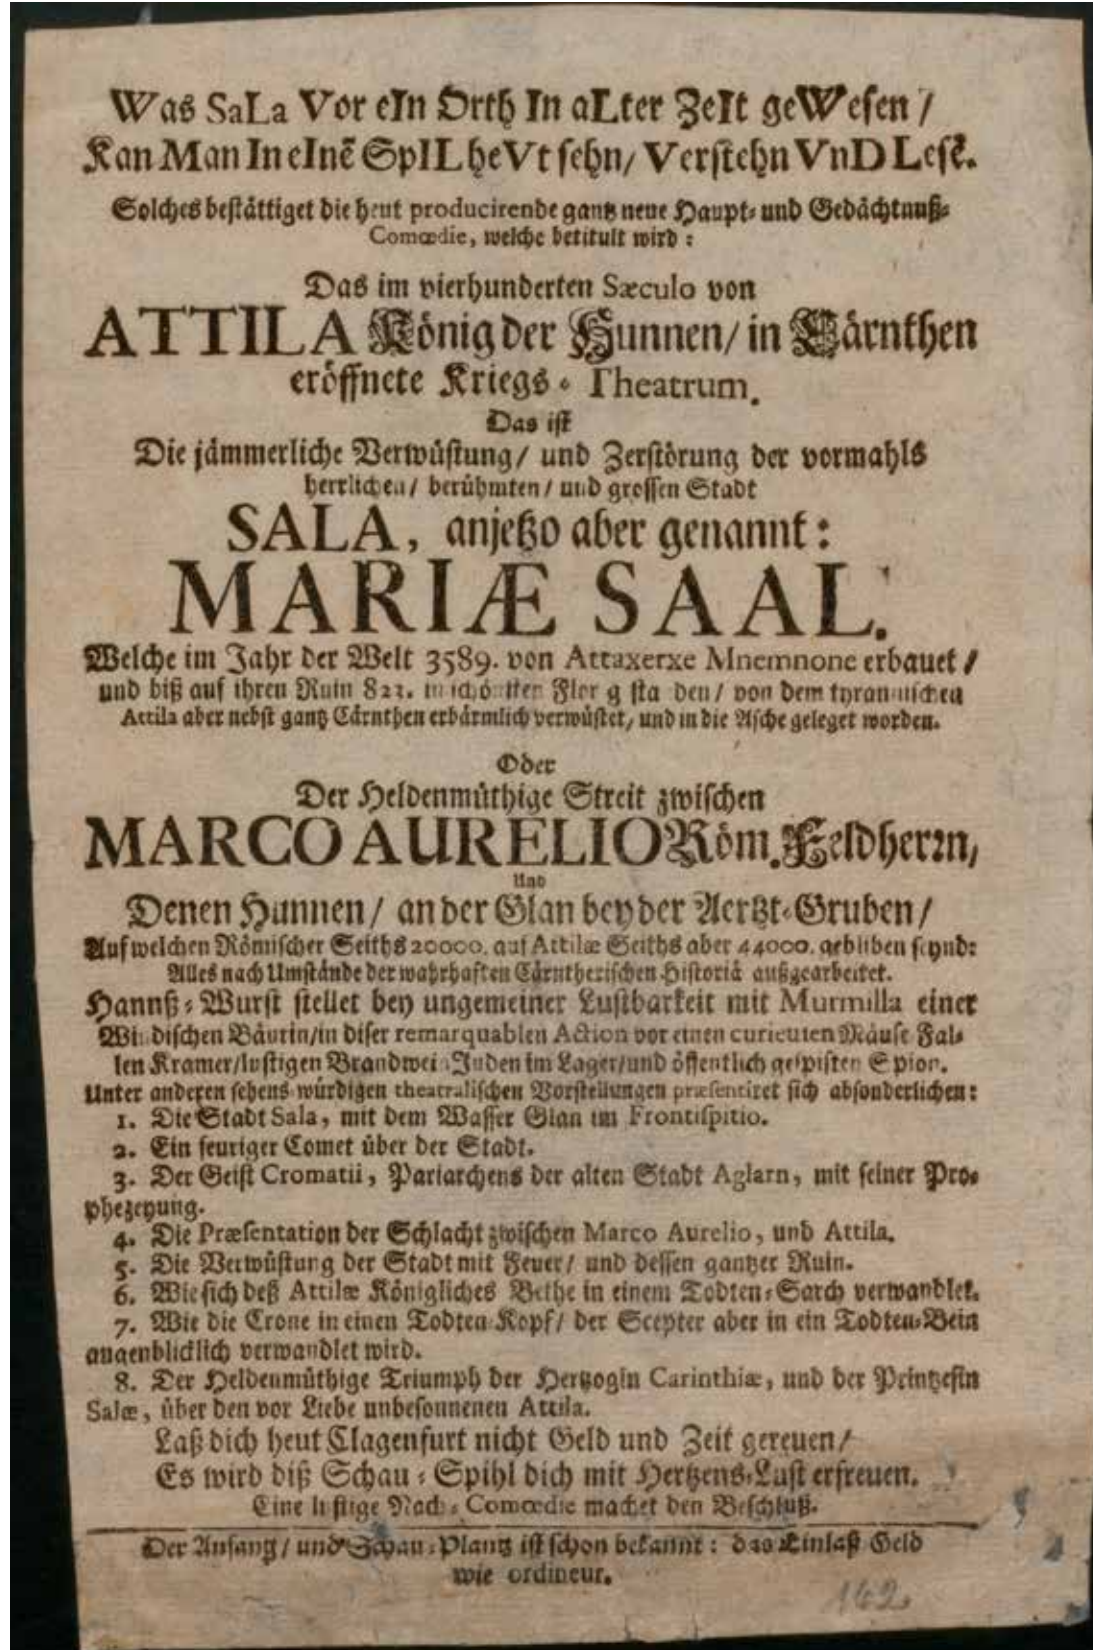 Was SaLa Vor eIn Orth In aLter ZeIt geWesen /
Kan Man In eInẽ SpILheVt sehn / Verstehn VnD Lesẽ.
Solches bestättiget die heut producirende gantz neue Haupt- und Gedächtnuß-
Comœdie, welche betitult wird:
Das im vierhunderten Sæculo von
ATTILA König der Hunnen / in Cärnthen
eröffnete Kriegs-Theatrum.
Das ist
Die jämmerliche Verwüstung / und Zerstörung der vormahls
herrlichen / berühmten / und grossen Stadt
SALA, anjetzo aber genannt:
MARIÆ SAAL.
Welche im Jahr der Welt 3589. von Attaxerxe Mnemnone erbauet /
und biß auf ihren Ruin 823. in schönsten Flor g sta den / von dem tyrannischen
Attila aber nebst gantz Cärnthen erbärmlich verwüstet / und in die Asche geleget worden.
Oder
Der Heldenmüthige Streit zwischen
MARCO AURELIO Röm. Feldherrn,
Und
Denen Hunnen / an der Glan bey der Aertzt-Gruben /
Auf welchen Römischer Seiths 20000. auf Attilæ Seiths aber 44000. gebliben seynd:
Alles nach Umstände der wahrhaften Cärntherischen Historiâ außgearbeitet.
Hannß-Wurst stellet bey ungemeiner Lustbarkeit mit Murmilla einer
Windischen Bäurin / in diser remarquablen Action vor einen curieuten Mäuse Fal-
len Kramer / lustigen Brandwein Juden im Lager / und öffentlich gespisten Spion.
Unter anderen sehens-würdigen theatralischen Vorstellungen præsentiret sich absonderlichen:
1. Die Stadt Sala, mit dem Wasser Glan im Frontispitio.
2. Ein feuriger Comet über der Stadt.
3. Der Geist Cromatii, Pariarchens der alten Stadt Aglarn, mit seiner Pro-
phezeyung.
4. Die Præsentation der Schlacht zwischen Marco Aurelio, und Attila.
5. Die Verwüstung der Stadt mit Feuer / und dessen gantzer Ruin.
6. Wie sich deß Attilæ Königliches Bethe in einem Todten-Sarch verwandlet.
7. Wie die Crone in einen Todten-Kopf / der Scepter aber in ein Todten-Bein
augenblicklich verwandlet wird.
8. Der Heldenmüthige Triumph der Hertzogin Carinthiæ, und der Printzesin
Salæ, über den vor Liebe unbesonnenen Attila.
Laß dich heut Clagenfurt nicht Geld und Zeit gereuen /
Es wird diß Schau-Spihl dich mit Hertzens-Lust erfreuen.
Eine lustige Nach-Comœdie machet den Beschluß.
Der Anfang / und Schau-Plantz ist schon bekannt: das Einlaß Geld
wie ordineur.
162